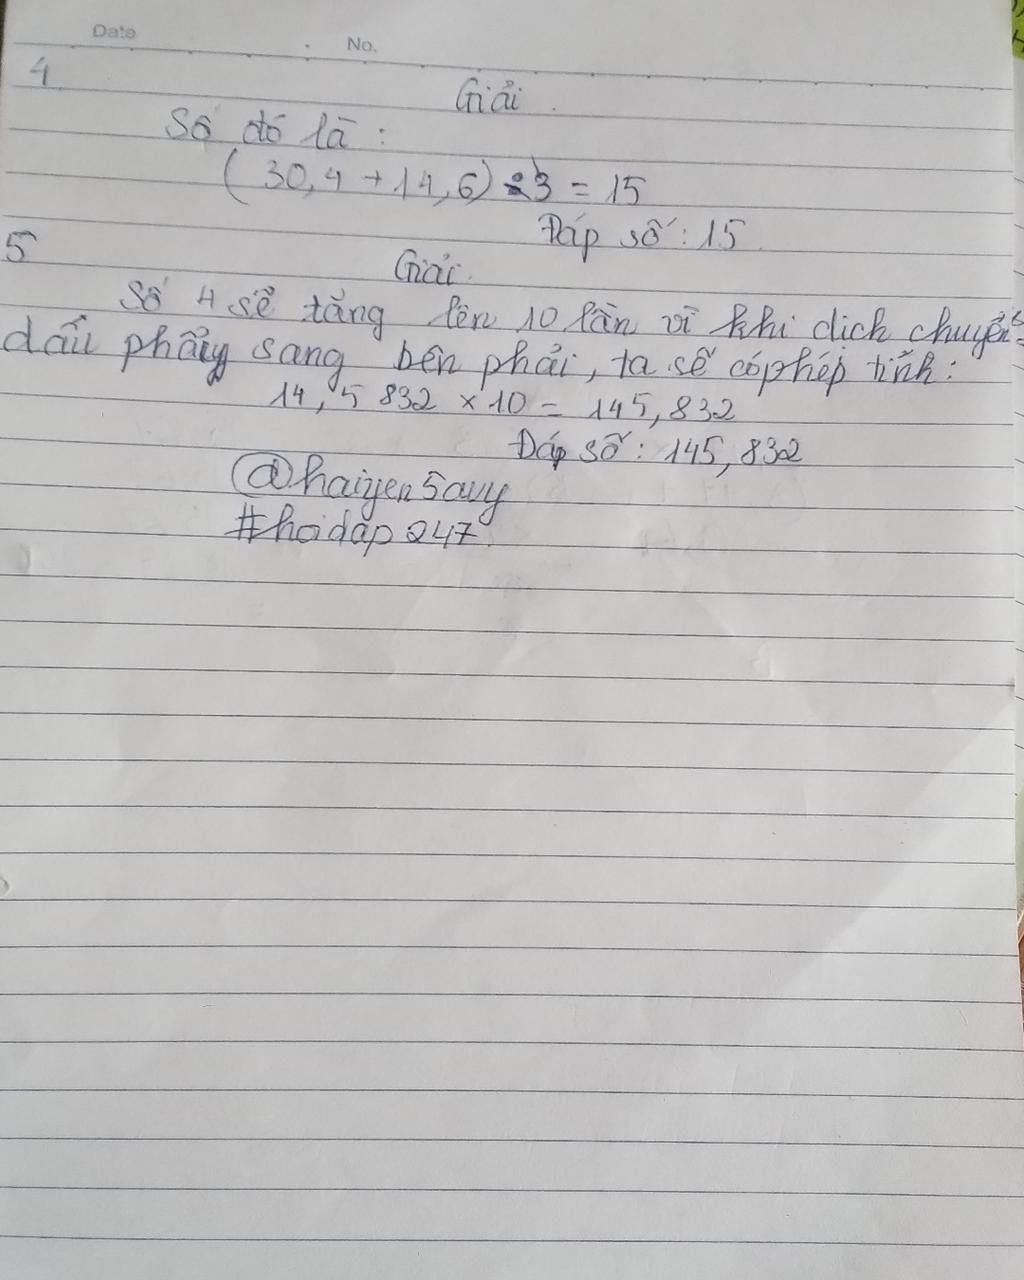 Date
No.
4
Giải
Số đó là :
( 30,4 + 14,6) : 3 = 15
Đáp số : 15
5
Giải
Số 4 sẽ tăng lên 10 lần vì khi dịch chuyển
dấu phẩy sang bên phải, ta sẽ có phép tính :
14,5 832 × 10 = 145,832
Đáp số : 145,832
@haiyen5avy
#hoidap247